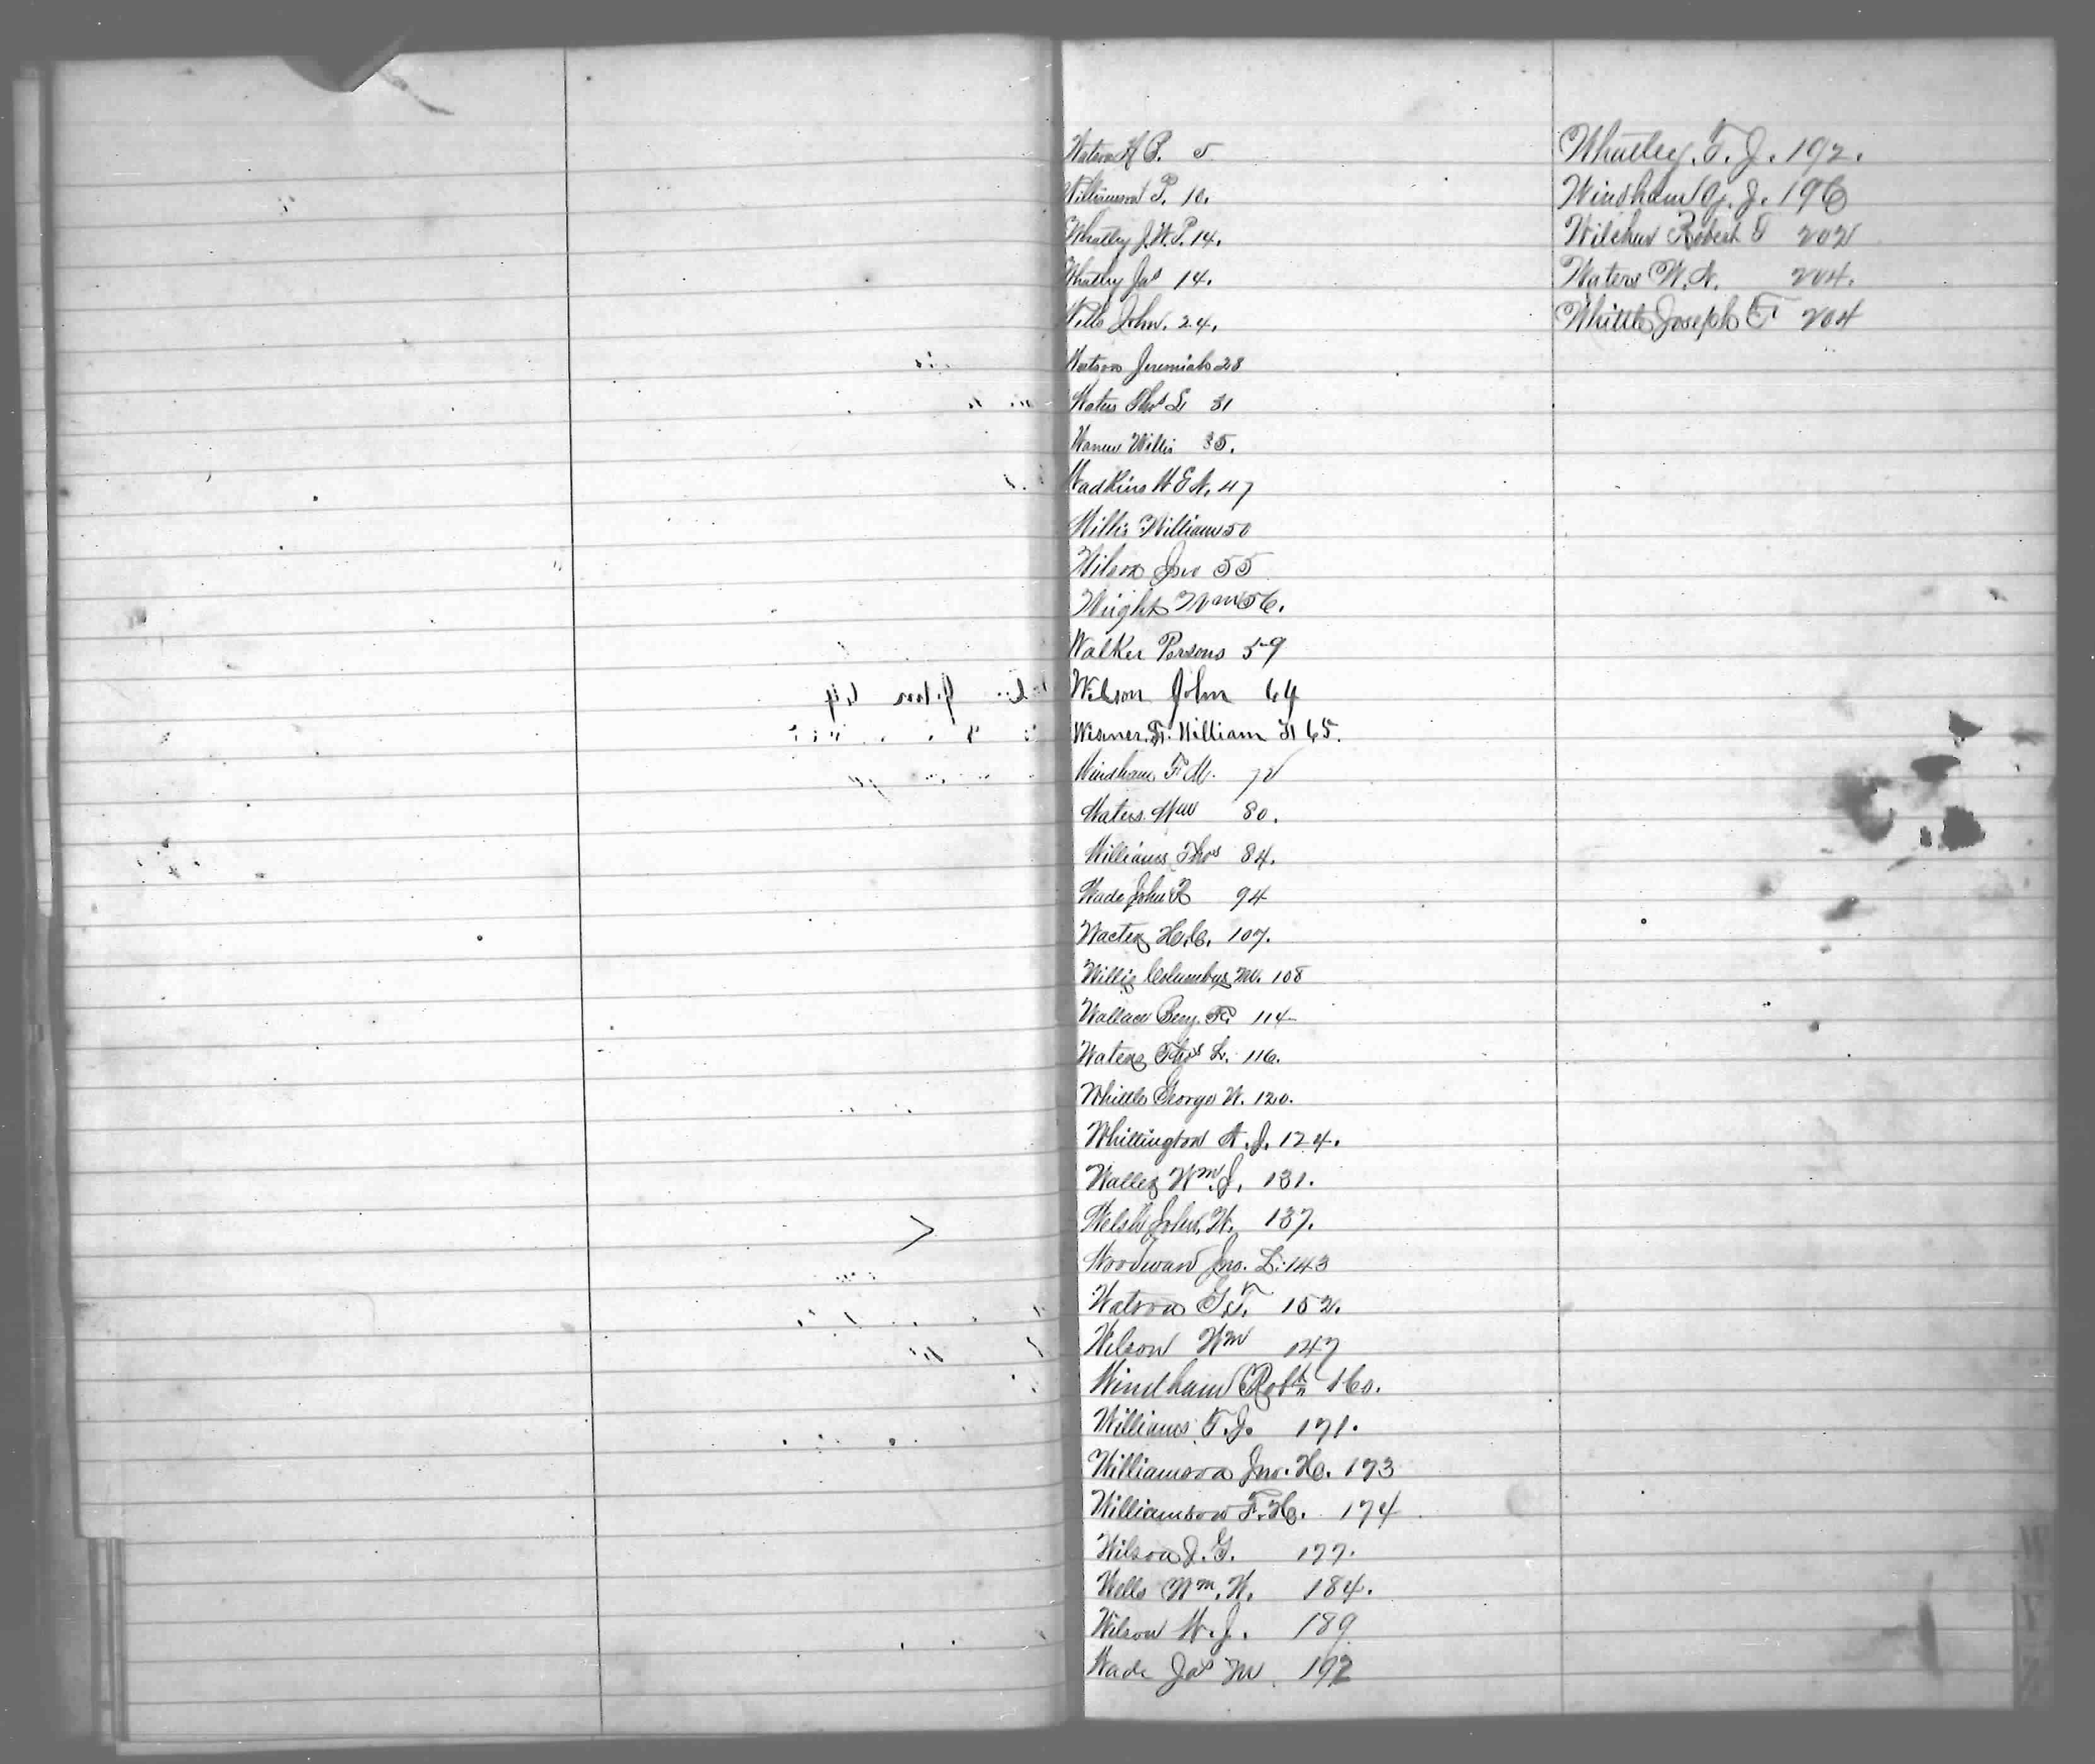 Watson H B. 5
Williamson P. 10.
Whatley J. W. P. 14.
Whatley Jas 14.
Wells John. 24.
Watson Jeremiah 28
Waters Thos L 31
Willis 35.
Wadkins 47
Willis William 50
Wilson Jno 55
Wright Wm 56.
Walker Persons 59
Wilson John 64
William H 65.
Windham F M. 72
Waters Wm 80.
Williams Thos 84.
Wade John R 94
H. C. 107.
Willis Columbus M. 108
Wallace Benj. F. 114
Waters Thos L. 116.
Whittle George W. 120.
Whittington A. J. 124.
Waller Wm J. 131.
Welsh John W. 137.
Woodward Jno. L. 143
Watson G. T. 152.
Wilson Wm 147
Windham Robt 160.
Williams T. J. 171.
Williamson Jno. H. 173
Williamson F. H. 174
Wilson J. G. 177.
Wells Wm. W. 184.
Wilson W. J. 189
Wade Jas M 192
Whatley. T. J. 192.
Windham J. 196
Robert T 202
Waters W. A. 204.
Whittle Joseph T 204